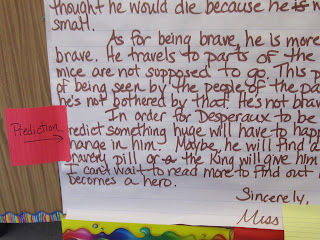 thought he would die because he is
small.
As for being brave, he is more
brave. He travels to parts of the
mice are not supposed to go. This
of being seen by the people of the
he's not bothered by that. He's not brav
In order for Desperaux to be
Prediction
redict something huge will have to happ
change in him. Maybe, he will find a
ravery pill or a the King will give him
I can't wait to read more to find out
becomes a hero.
Sincerely,
Miss